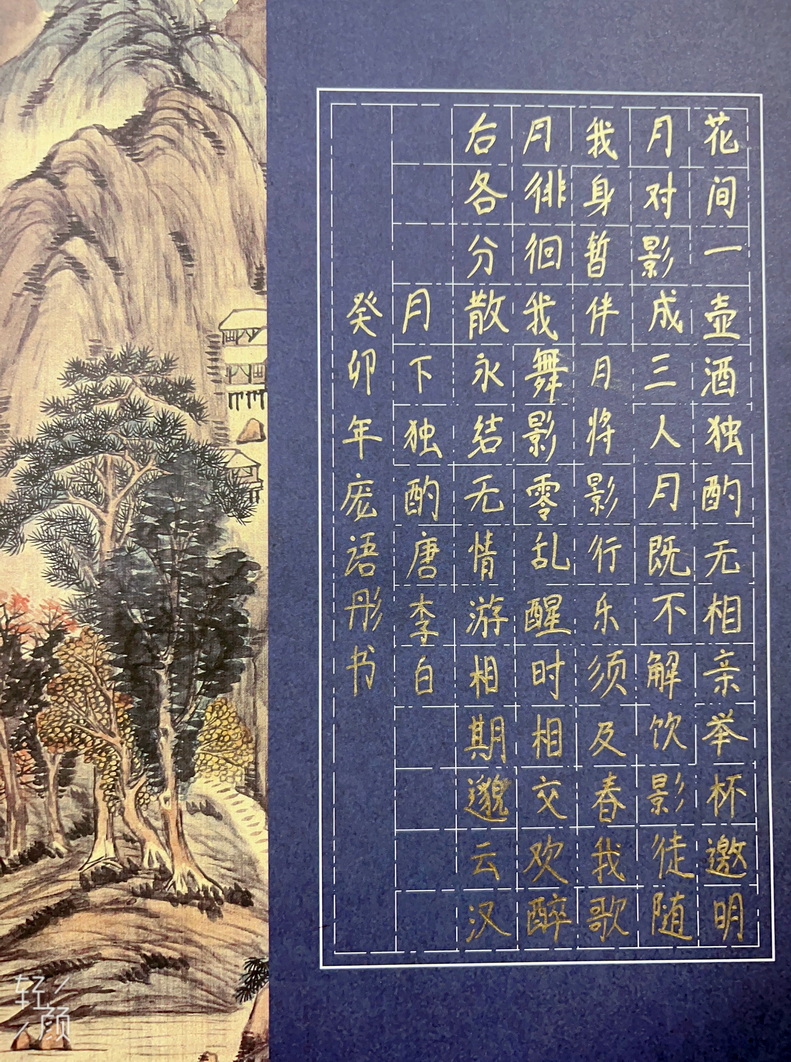 花间一壶酒独酌无相亲举杯邀明
月对影成三人月既不解饮影徒随
我身暂伴月将影行乐须及春我歌
月徘徊我舞影零乱醒时相交欢醉
后各分散永结无情游相期邈云汉
月下独酌唐李白
癸卯年庞语彤书
轻颜